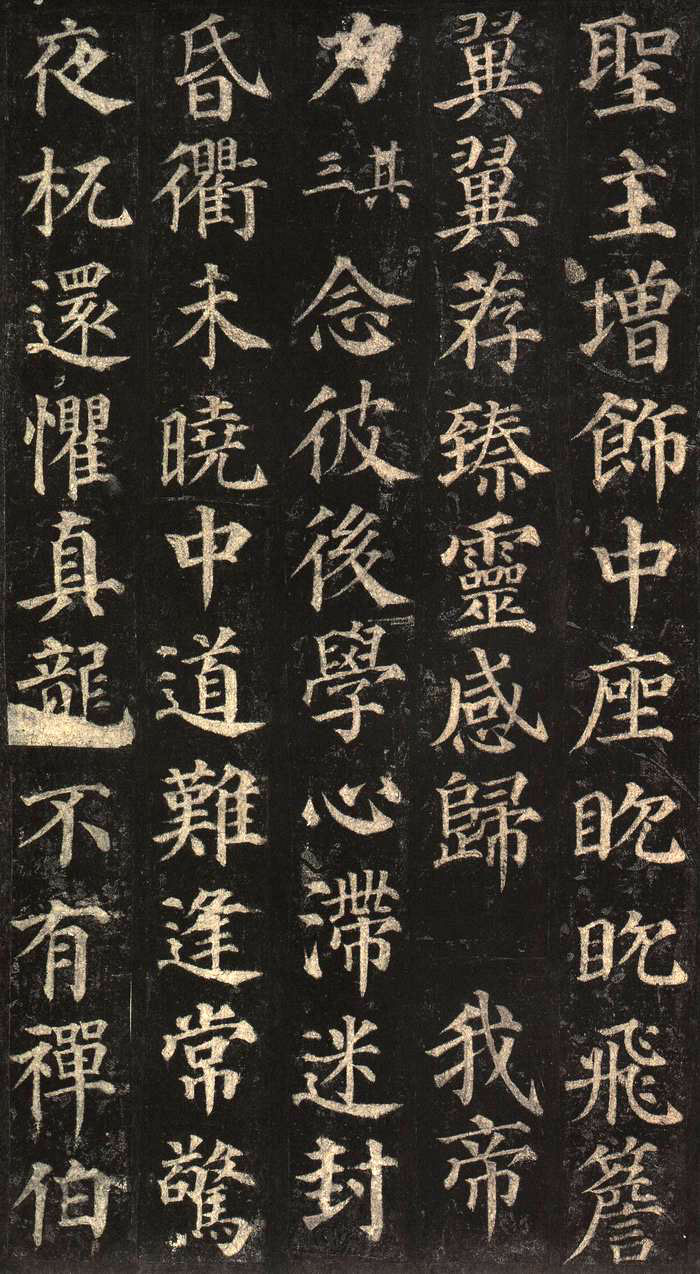 聖主增飾中座晚晚飛簷
翼翼荐臻靈感歸我帝
力其三念彼後學心滯迷封
昏衢未曉中道難逢常驚
夜杌還懼真龍不有禪伯